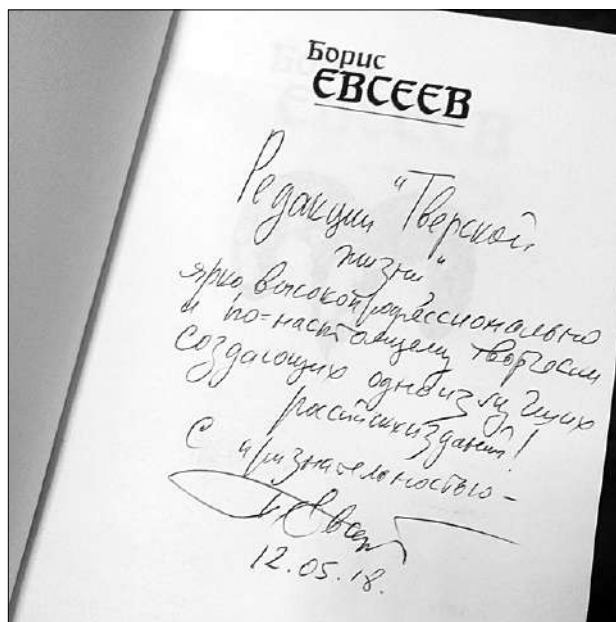 Борис
ЕВСЕЕВ
Редакции "Тверской
жизни"
ярко, высокопрофессионально
и по-настоящему творчески
создающих одно из лучших
российских изданий!
С признательностью –
Б Евсеев
12.05.18.